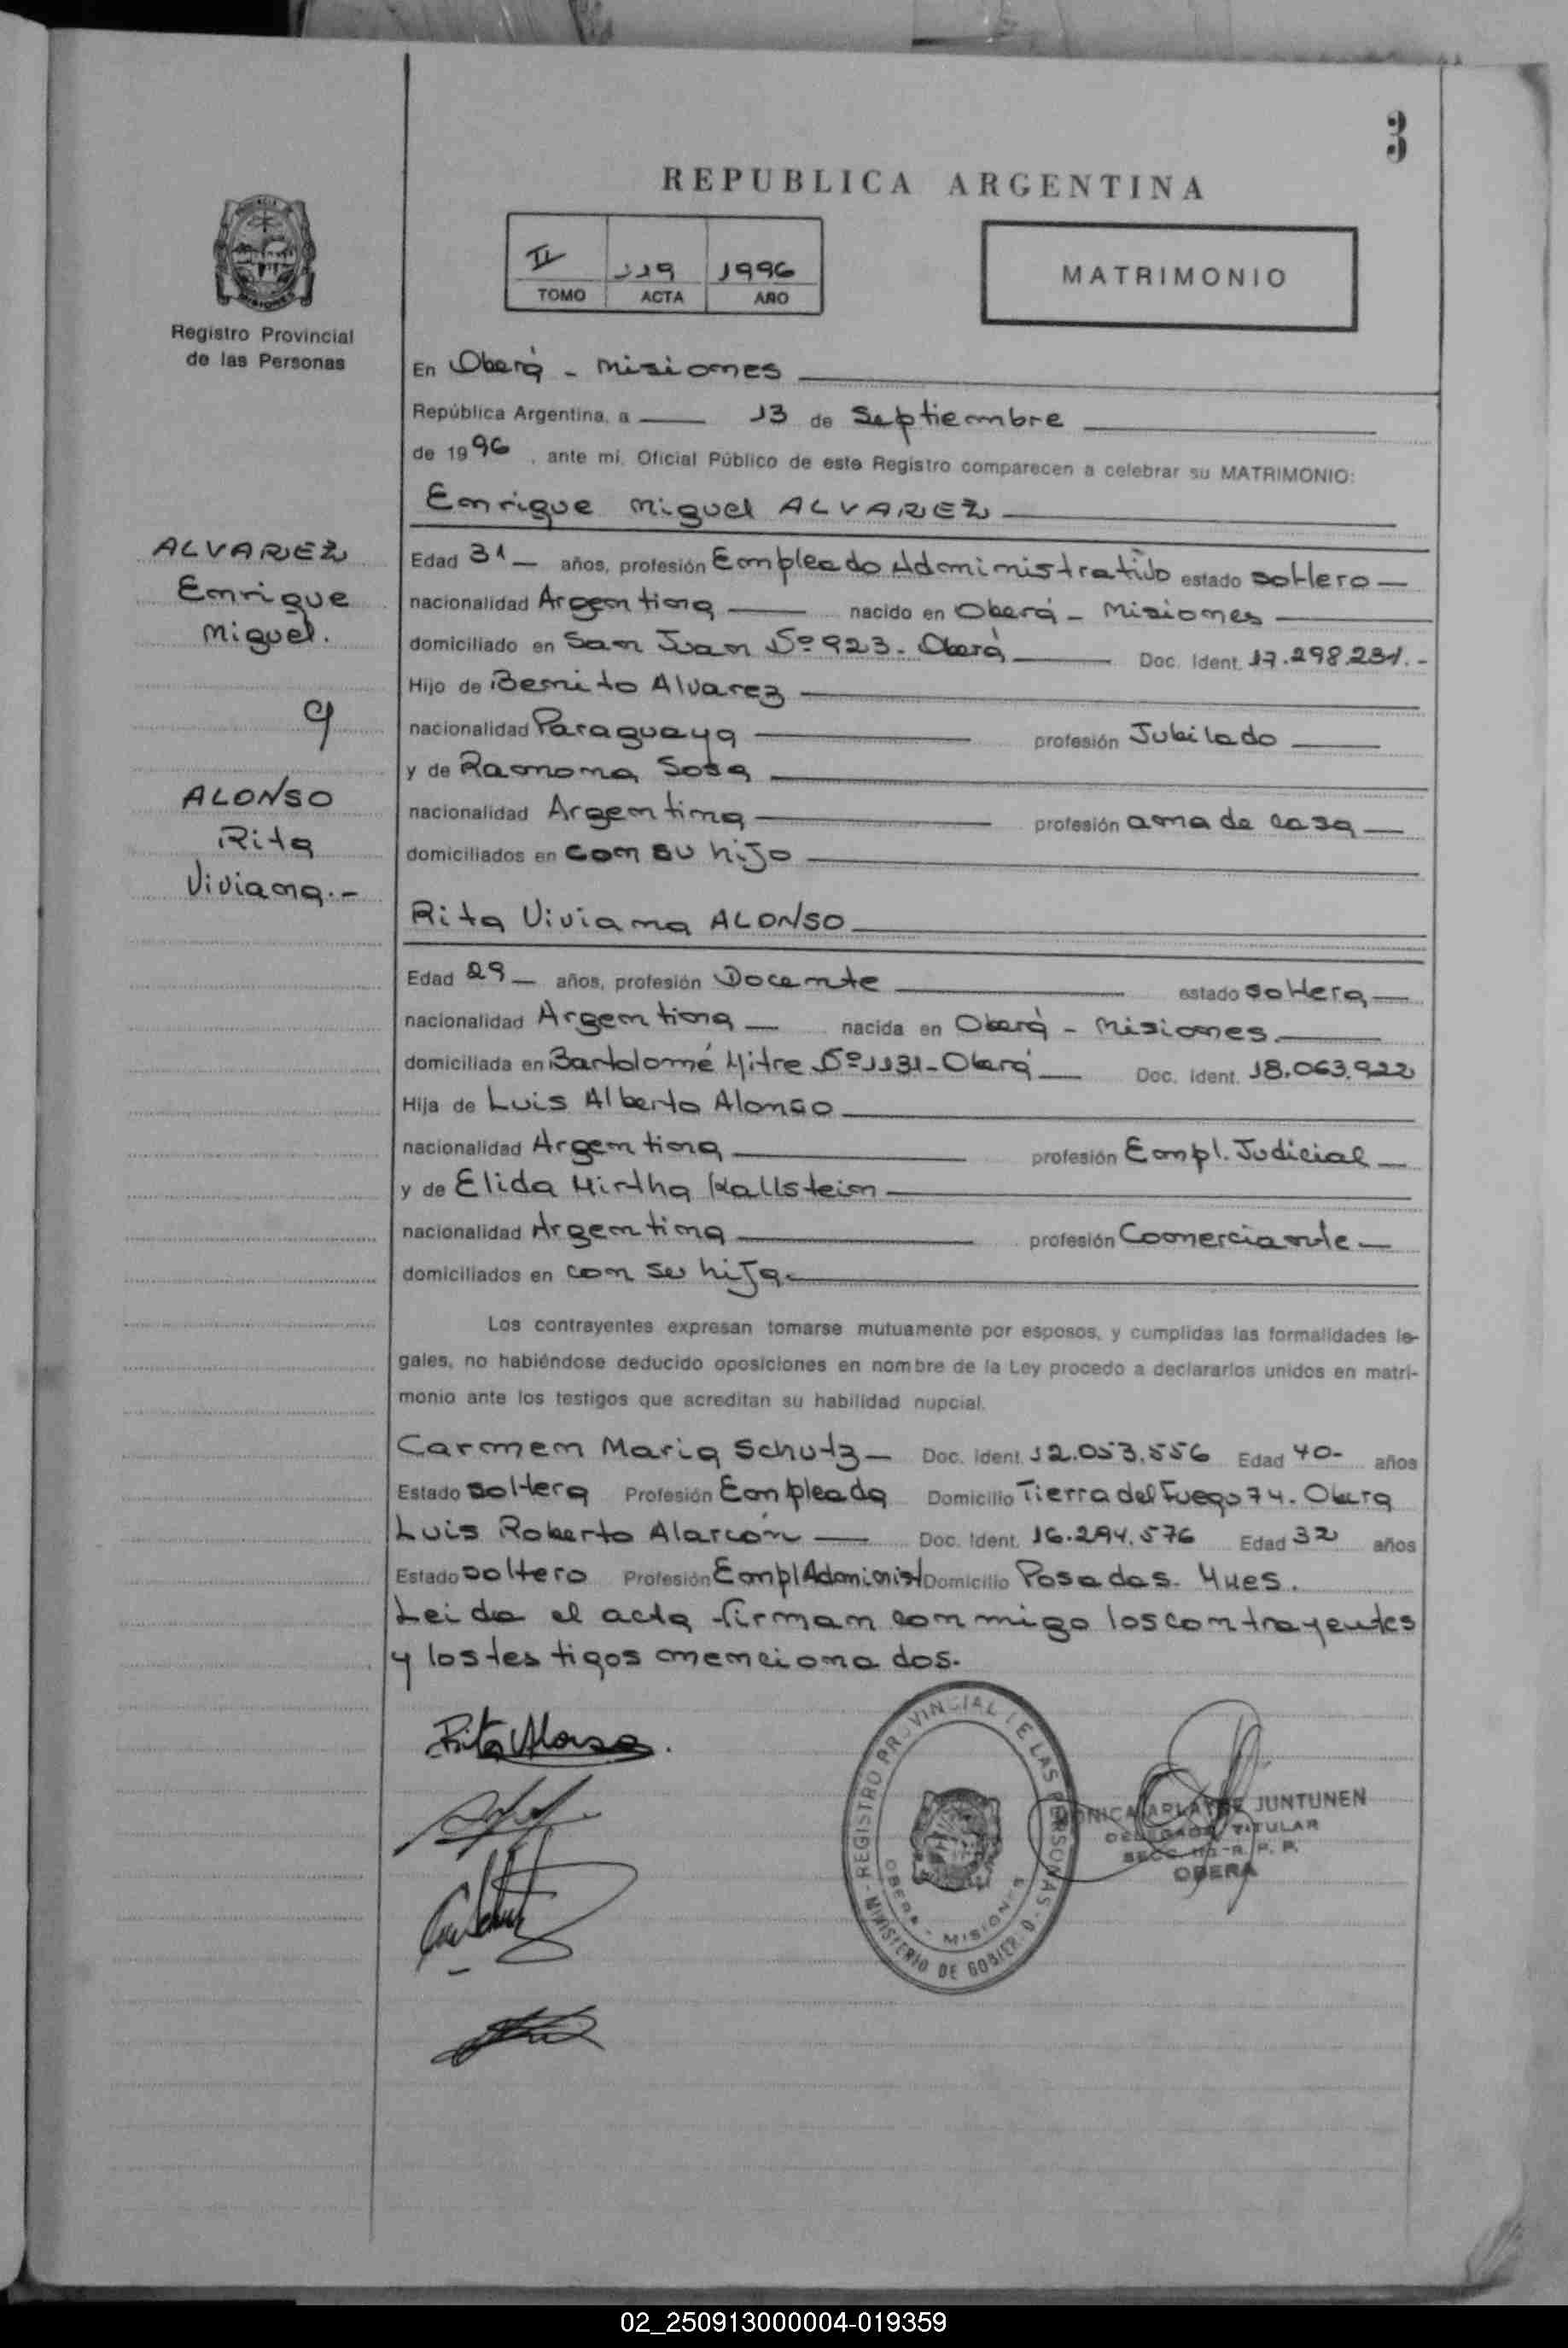 3
REPUBLICA ARGENTINA
II 119 1996
TOMO ACTA AÑO
MATRIMONIO
Registro Provincial
de las Personas
En Oberá - Misiones
República Argentina, a 13 de Septiembre
de 1996, ante mi, Oficial Público de este Registro comparecen a celebrar su MATRIMONIO:
Enrique Miguel ALVAREZ
ALVAREZ
Enrique
Miguel.
y
ALONSO
Rita
Viviana.-
Edad 31 años, profesión Empleado Administrativo estado soltero
nacionalidad Argentina nacido en Oberá - Misiones
domiciliado en San Juan Nº 923 - Oberá Doc. Ident. 17.298.231.-
Hijo de Benito Alvarez
nacionalidad Paraguaya profesión Jubilado
y de Ramona Sosa
nacionalidad Argentina profesión ama de casa
domiciliados en con su hijo
Rita Viviana ALONSO
Edad 29 años, profesión Docente estado soltera
nacionalidad Argentina nacida en Oberá - Misiones.
domiciliada en Bartolomé Mitre Nº 1131 - Oberá Doc. Ident. 18.063.922
Hija de Luis Alberto Alonso
nacionalidad Argentina profesión Empl. Judicial
y de Elida Mirtha Kallstein
nacionalidad Argentina profesión Comerciante
domiciliados en con su hija.
Los contrayentes expresan tomarse mutuamente por esposos, y cumplidas las formalidades le-
gales, no habiéndose deducido oposiciones en nombre de la Ley procedo a declararlos unidos en matri-
monio ante los testigos que acreditan su habilidad nupcial.
Carmen Maria Schutz Doc. Ident. 12.053.556 Edad 40- años
Estado soltera Profesión Empleada Domicilio Tierra del Fuego 74. Obera
Luis Roberto Alarcón Doc. Ident. 16.294.576 Edad 32 años
Estado soltero Profesión Empl Administ Domicilio Posadas. Mnes.
Leida el acta firman conmigo los contrayentes
y los testigos mencionados.
Rita Alonso.
REGISTRO PROVINCIAL DE LAS PERSONAS
OBERA - MISIONES
MINISTERIO DE GOBIERNO
JUNTUNEN
DELEGADA TITULAR
SECC. R. P. P.
OBERA
02_250913000004-019359